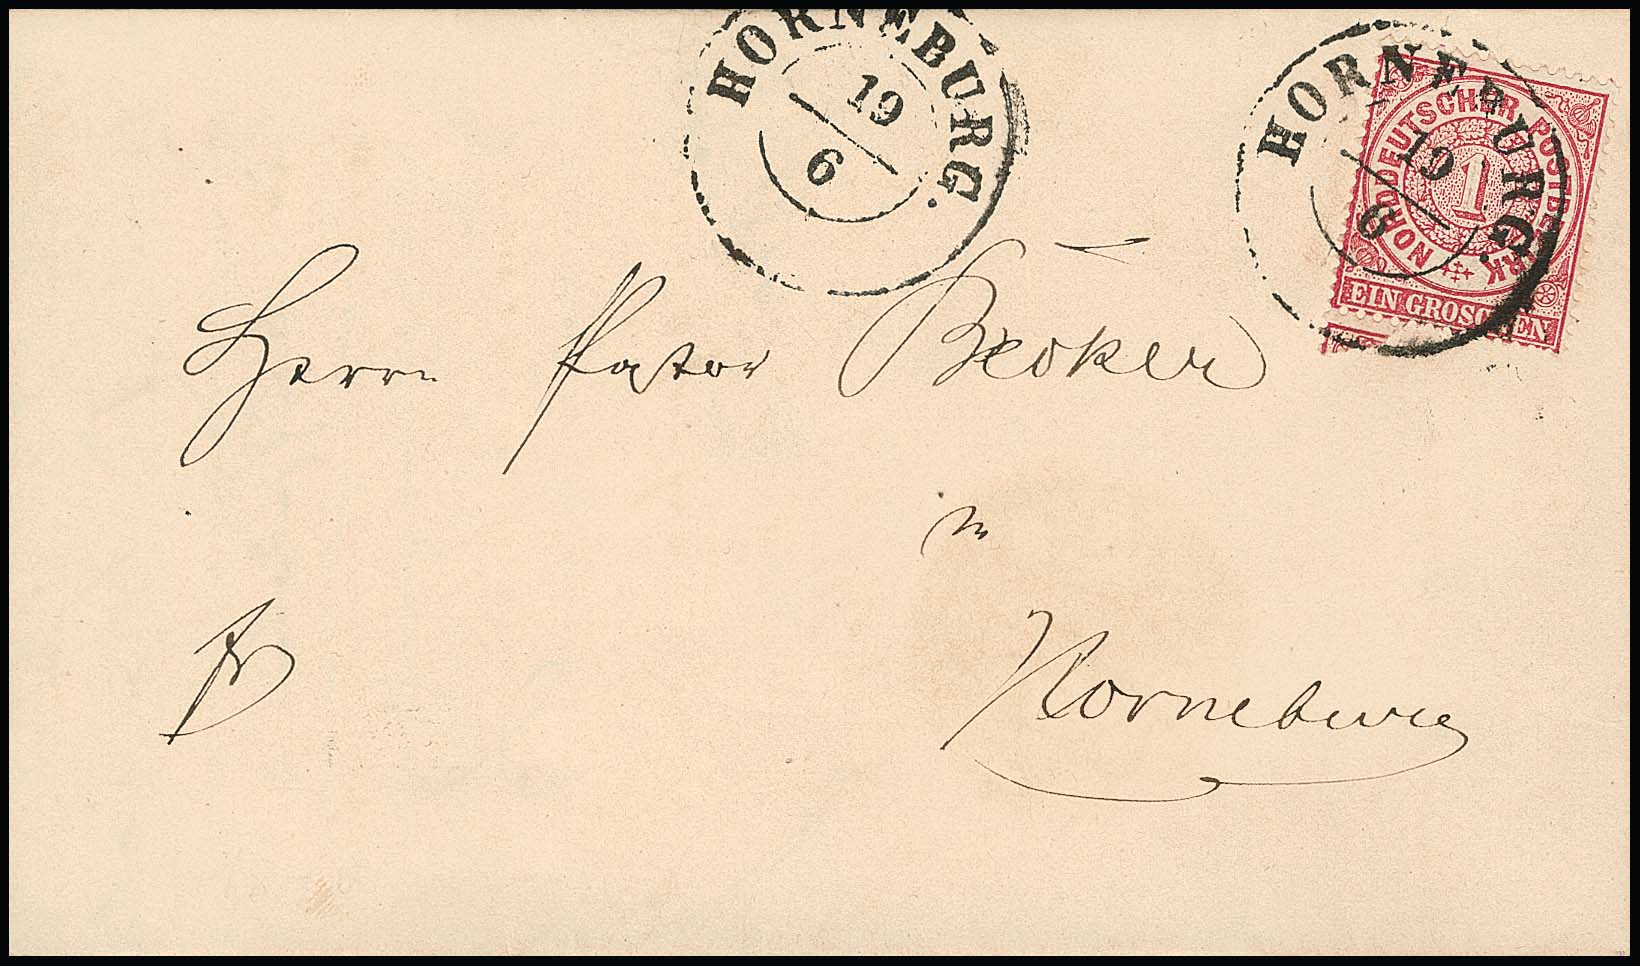 HORNEBURG.
19
6
HORNEBURG.
19
6
NORDDEUTSCHER POSTBEZIRK
1
EIN GROSCHEN
Herrn Pastor
in
Horneburg